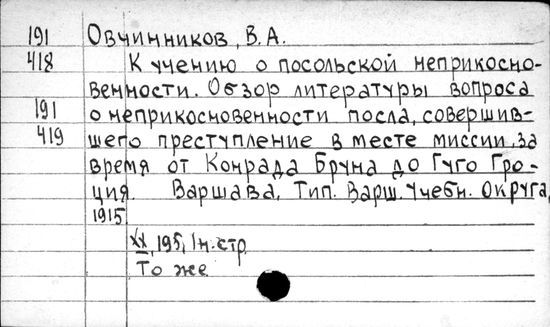 191 Овчинников, В.А.
418 К учению о посольской неприкосно-
венности. Обзор литературы вопроса
191 о неприкосновенности посла, совершив-
419 шего преступление в месте миссии, за
время от Конрада Бруна до Гуго Гро-
ция. Варшава, Тип. Варш. Учебн. Округа,
1915
XX, 195, 1 н. стр.
То же